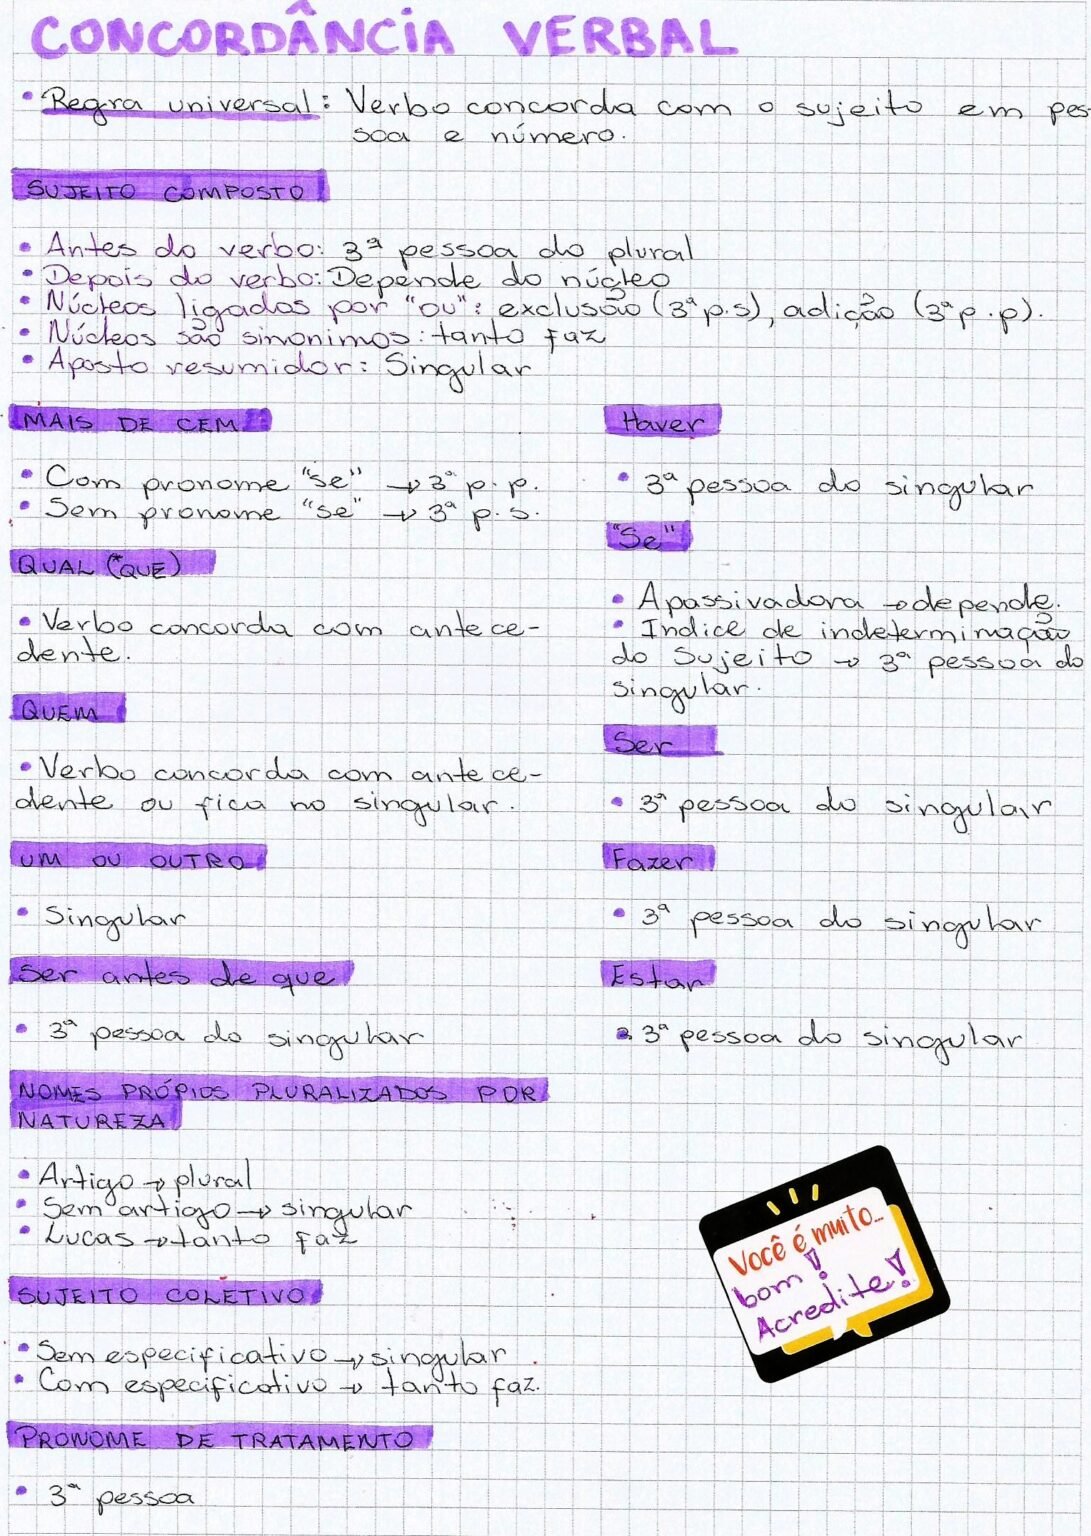 CONCORDÂNCIA VERBAL
• Regra universal: Verbo concorda com o sujeito em pes
soa e número.
SUJEITO COMPOSTO
• Antes do verbo: 3ª pessoa do plural
• Depois do verbo: Depende do núcleo
• Núcleos ligados por "ou": exclusão (3ª p.s), adição (3ª p.p).
• Núcleos são sinonimos: tanto faz
• Aposto resumidor: Singular
MAIS DE CEM
• Com pronome "se" → 3ª p.p.
• Sem pronome "se" → 3ª p.s.
QUAL ("QUE)
• Verbo concorda com antece-
dente.
QUEM
• Verbo concorda com antece-
dente ou fica no singular.
UM OU OUTRO
• Singular
Ser antes de que
• 3ª pessoa do singular
NOMES PRÓPIOS PLURALIZADOS POR
NATUREZA
• Artigo → plural
• Sem artigo → singular
• Lucas → tanto faz
SUJEITO COLETIVO
• Sem especificativo → singular
• Com especificativo → tanto faz.
PRONOME DE TRATAMENTO
• 3ª pessoa
Haver
• 3ª pessoa do singular
"Se"
• Apassivadora → depende.
• Indice de indeterminação
do sujeito → 3ª pessoa do
singular.
Ser
• 3ª pessoa do singular
Fazer
• 3ª pessoa do singular
Estar
• 3ª pessoa do singular
Você é muito...
bom!
Acredite!